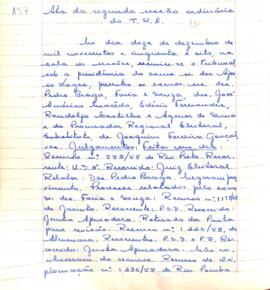 197
Ata da segunda sessão ordinária
do T.R.E.
No dia doze de dezembro de
mil novecentos e cinquenta e oito, na
sala de sessões, reuniu-se o Tribunal,
sob a presidência do exmo. sr. des.
Lages, presentes os exmos. srs. des.
Pedro Braga, Faria e Souza, drs. José
Américo Macêdo, Edésio Fernandes,
Randolfo e Ageno de Senna
e do Procurador Regional Eleitoral,
substituto dr. Joaquim Ferreira Gonçal-
ves. Julgamentos: Feitos com dia:
Recurso nº 232/58 de Rio Preto. Recor-
rente: U.D.N. Recorrido: Juiz Eleitoral.
Relator: Des. Pedro Braga. Negaram pro-
vimento. Processos relatados pelo exmo.
sr. des. Faria e Souza: Recurso nº
de Jacinto. Recorrente: P.S.D. Recorrido:
Junta Apuradora. Retirado da Pauta
para revisão. Recurso nº 1225/58, de
Almenara. Recorrentes: P.S.D. e P.R. Re-
corrido: Junta Apuradora. Não co-
nheceram do recurso. Recurso de di-
plomação nº 1235/58 de Rio Pomba.